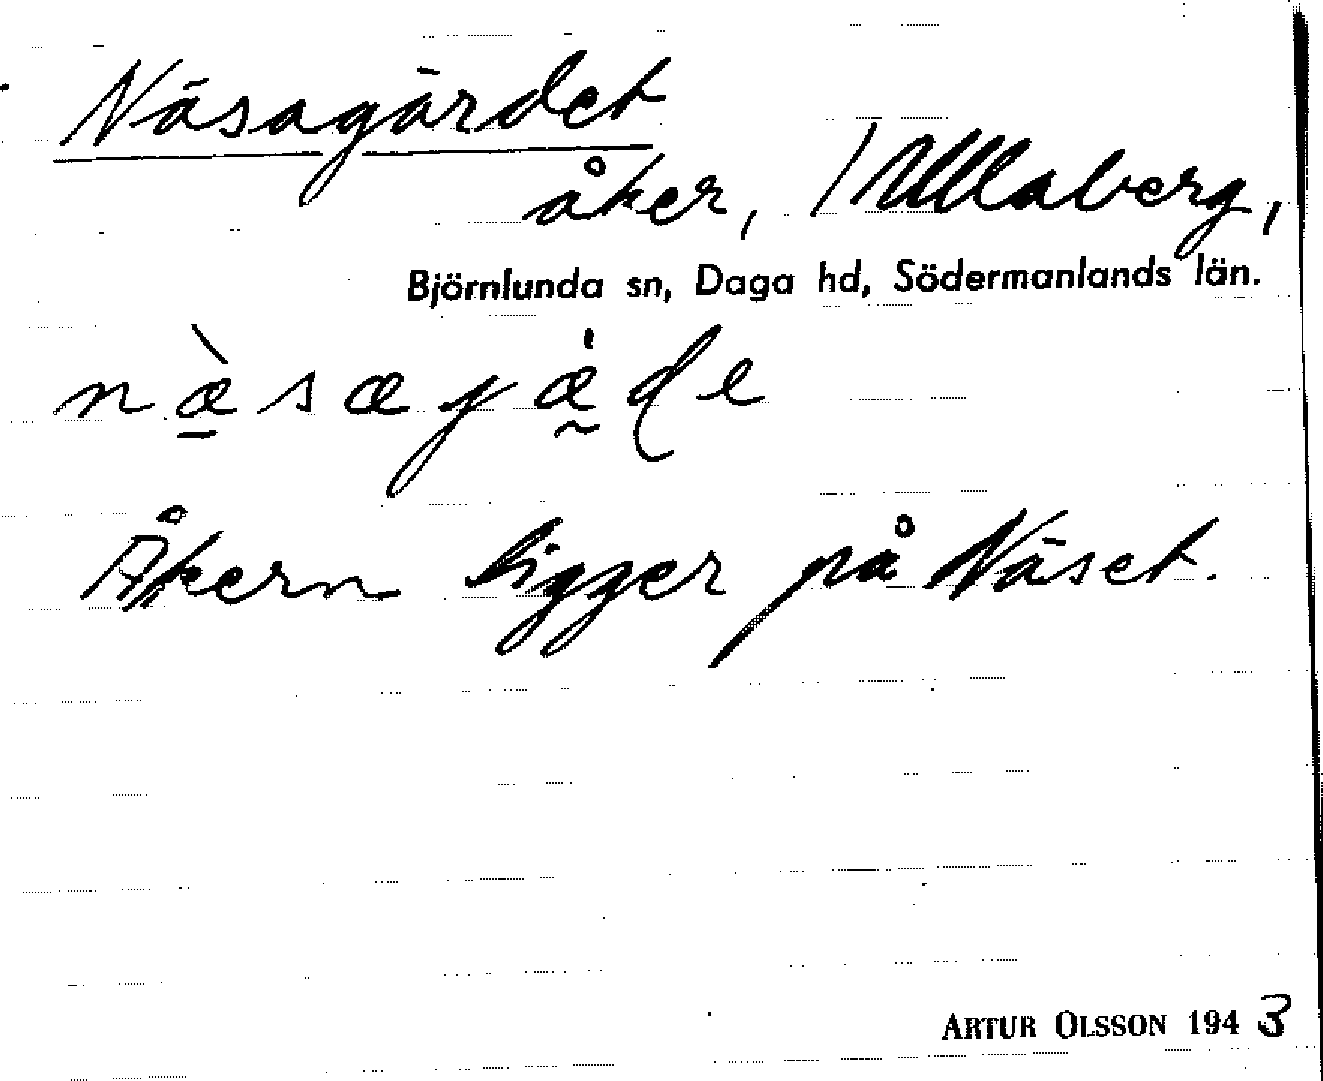 Näsagärdet
åker, / Ullaberg,
Björnlunda sn, Daga hd, Södermanlands län.
Åkern ligger på Näset.
ARTUR OLSSON 1943